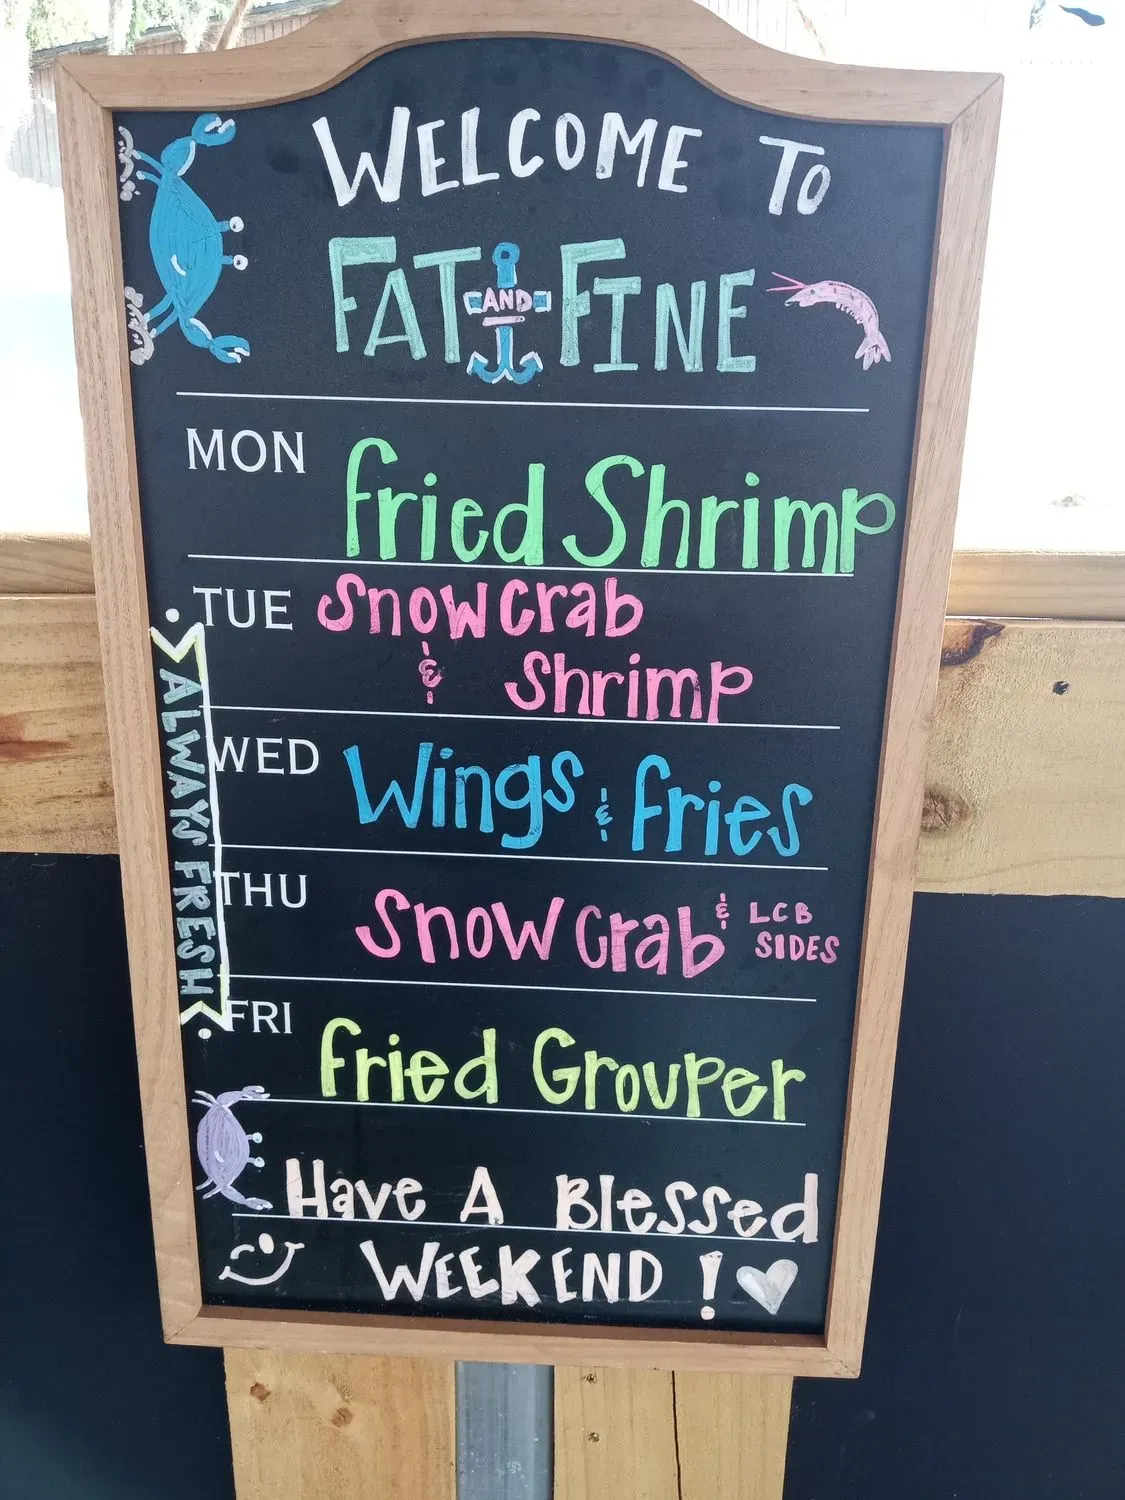 WELCOME TO
FAT AND FINE
MON Fried Shrimp
TUE Snow Crab
& Shrimp
WED Wings & Fries
THU Snow Crab & LCB
SIDES
FRI Fried Grouper
ALWAYS FRESH
Have A Blessed
WEEKEND!